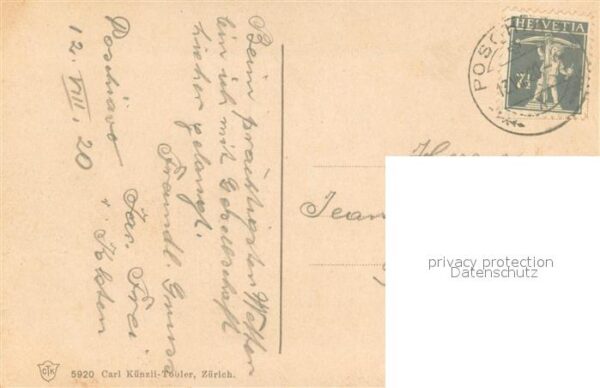 Beim prächtigsten Wetter
bin ich mit Gesellschaft
hieher gelangt.
Freundl. Gruss
Jac. Frei
Poschiavo
12. VIII. 20
HELVETIA
7½
POSC
Jean
privacy protection
Datenschutz
CTK
5920 Carl Künzli-Tobler, Zürich.